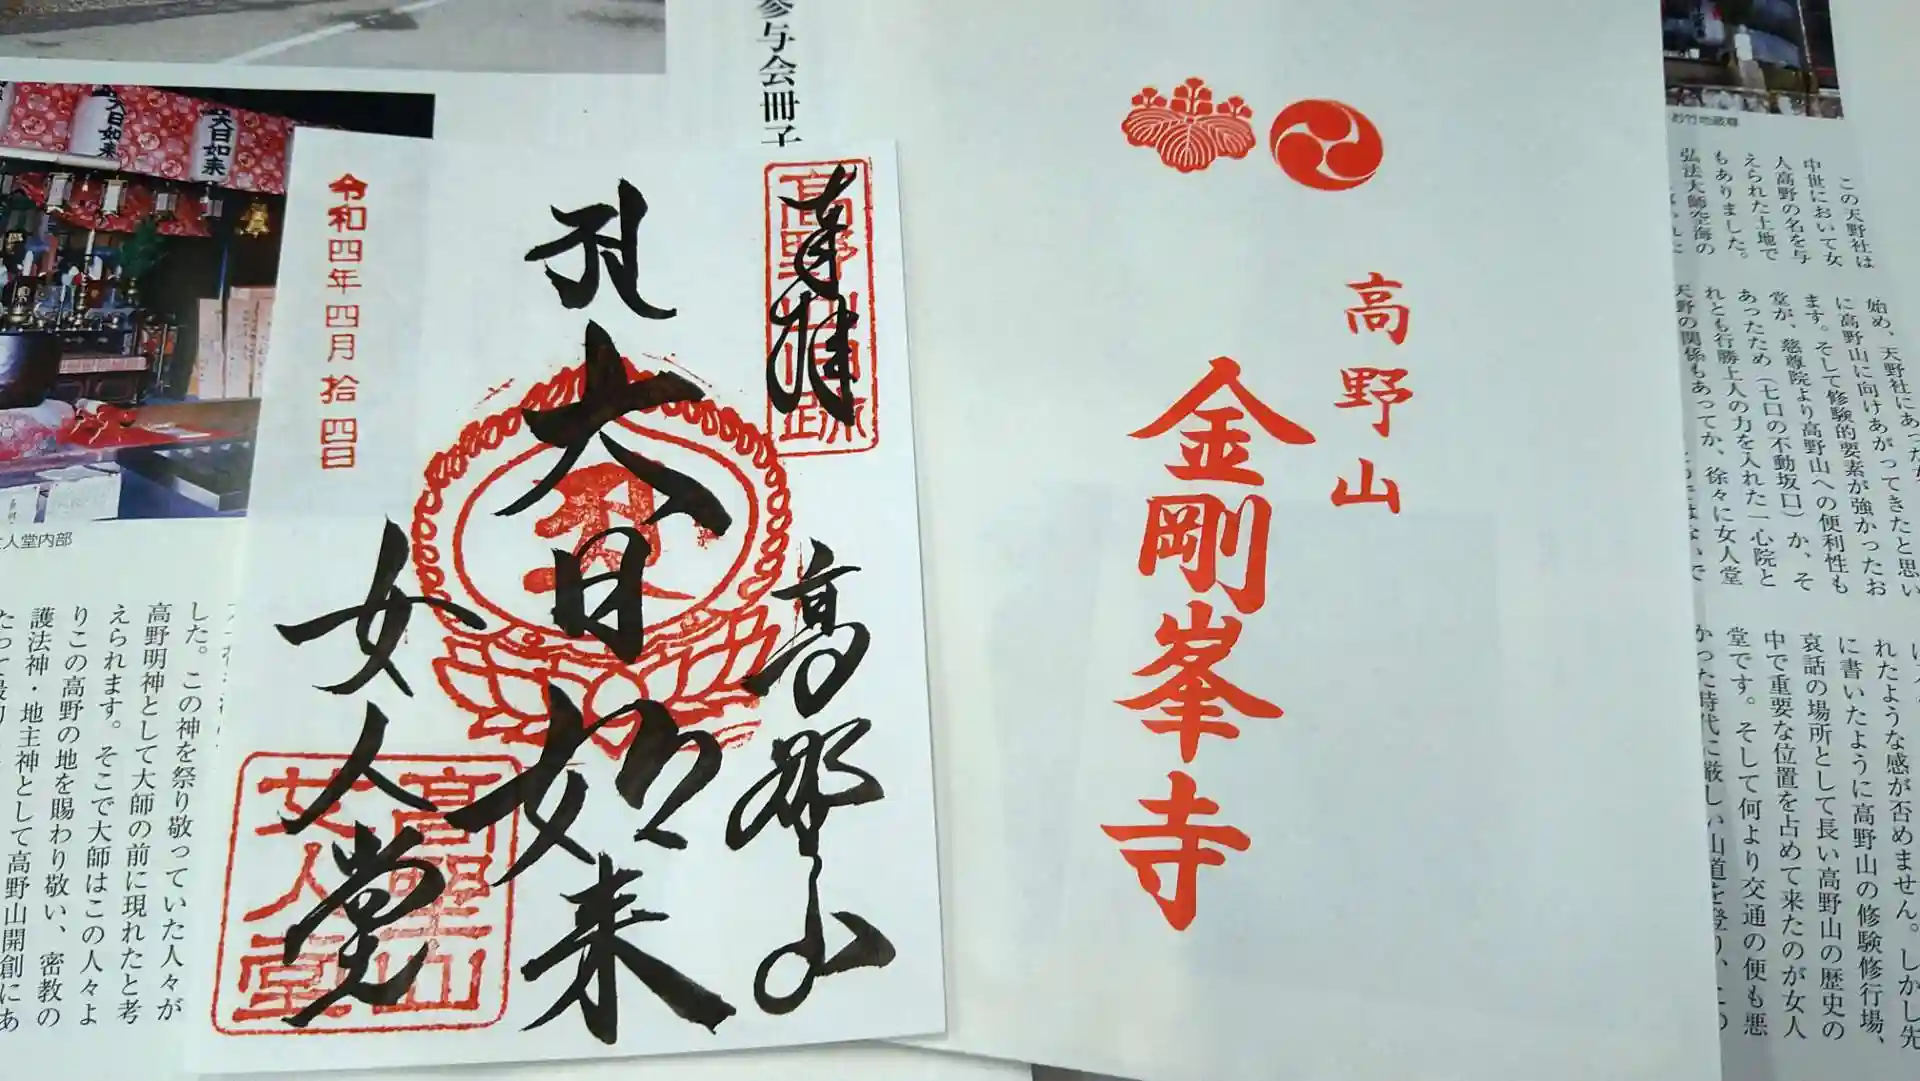 参与会冊子
大日如来
大日如来
人堂内部
令和四年四月拾四日
奉拝
高野山
大日如来
女人堂
高野山
女人堂
高野山
金剛峯寺
お竹地蔵尊
この天野社は
中世において女
人高野の名を与
えられた土地で
もありました。
弘法大師空海の
始め、天野社にあった
に高野山に向けあがってきたと思い
ます。そして修験的要素が強かったお
堂が、慈尊院より高野山への便利性も
あったため（七口の不動坂口）か、そ
れとも行勝上人の力を入れた一心院と
天野の関係もあってか、徐々に女人堂
れたような感が否めません。しかし先
に書いたように高野山の修験修行場、
哀話の場所として長い高野山の歴史の
中で重要な位置を占めて来たのが女人
堂です。そして何より交通の便も悪
かった時代に厳しい山道を登り、
した。この神を祭り敬っていた人々が
高野明神として大師の前に現れたと考
えられます。そこで大師はこの人々よ
りこの高野の地を賜わり敬い、密教の
護法神・地主神として高野山開創にあ